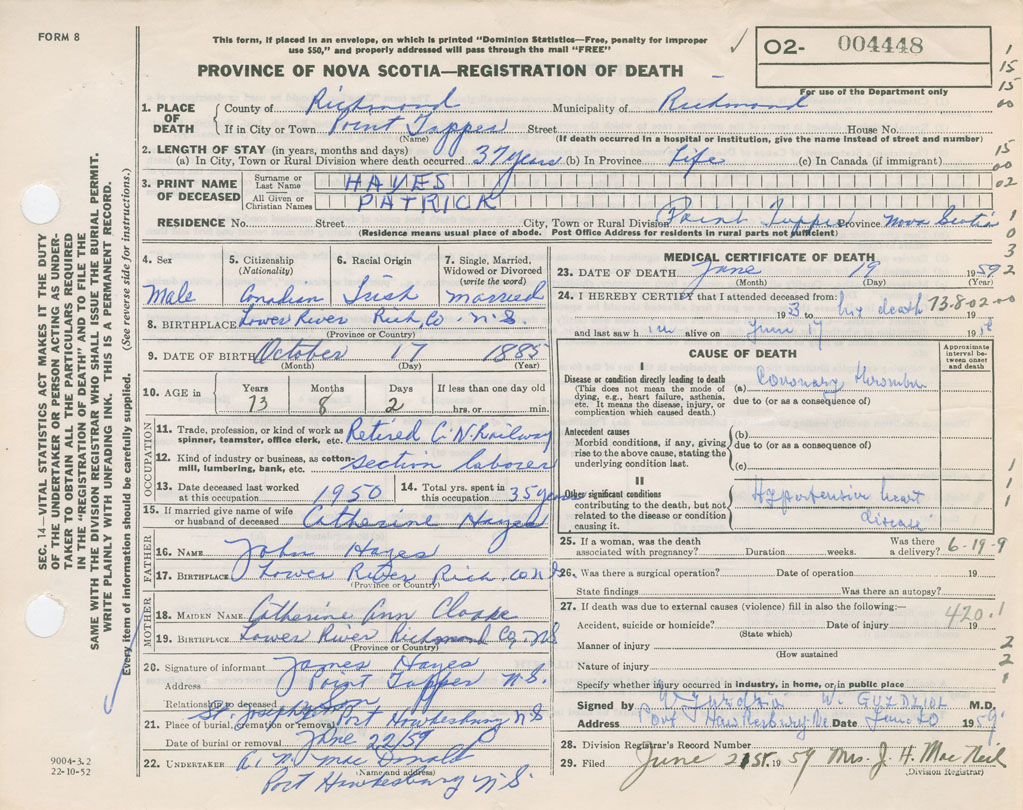 FORM 8
This form, if placed in an envelope, on which is printed "Dominion Statistics—Free, penalty for improper
use $50," and properly addressed will pass through the mail "FREE"
PROVINCE OF NOVA SCOTIA—REGISTRATION OF DEATH
02- 004448
For use of the Department only
1. PLACE OF DEATH County of Richmond Municipality of Richmond
If in City or Town Point Tupper Street House No.
(Name) (If death occurred in a hospital or institution, give the name instead of street and number)
2. LENGTH OF STAY (in years, months and days)
(a) In City, Town or Rural Division where death occurred 37 years (b) In Province Life (c) In Canada (if immigrant)
3. PRINT NAME OF DECEASED
Surname or Last Name HAYES
All Given or Christian Names PATRICK
RESIDENCE No. Street City, Town or Rural Division Point Tupper Province Nova Scotia
(Residence means usual place of abode. Post Office Address for residents in rural parts not sufficient)
4. Sex Male
5. Citizenship (Nationality) Canadian
6. Racial Origin Irish
7. Single, Married, Widowed or Divorced (write the word) Married
8. BIRTHPLACE Lower River Rich. Co. N.S.
(Province or Country)
9. DATE OF BIRTH October 17 1885
(Month) (Day) (Year)
10. AGE in Years 73 Months 8 Days 2 If less than one day old hrs. or min.
OCCUPATION
11. Trade, profession, or kind of work as spinner, teamster, office clerk, etc. Retired C.N. Railway
12. Kind of industry or business, as cotton-mill, lumbering, bank, etc. section laborer
13. Date deceased last worked at this occupation 1950
14. Total yrs. spent in this occupation 35 years
15. If married give name of wife or husband of deceased Catherine Hayes
FATHER
16. NAME John Hayes
17. BIRTHPLACE Lower River Rich. Co. N.S.
(Province or Country)
MOTHER
18. MAIDEN NAME Catherine Ann
19. BIRTHPLACE Lower River Richmond Co. N.S.
(Province or Country)
20. Signature of informant James Hayes
Address Point Tupper N.S.
Relationship to deceased Son
21. Place of burial, cremation or removal St. Josephs Port Hawkesbury N.S
Date of burial or removal June 22/59
22. UNDERTAKER A. N. MacDonald
(Name and address)
Port Hawkesbury N.S.
MEDICAL CERTIFICATE OF DEATH
23. DATE OF DEATH June 19 1959
(Month) (Day) (Year)
24. I HEREBY CERTIFY that I attended deceased from:
1953 to his death 19
73-8-02-00
and last saw him alive on June 17 19
CAUSE OF DEATH
Approximate interval between onset and death
I
Disease or condition directly leading to death
(This does not mean the mode of dying, e.g., heart failure, asthenia, etc. It means the disease, injury, or complication which caused death.)
(a) Coronary thrombus
due to (or as a consequence of)
Antecedent causes
Morbid conditions, if any, giving rise to the above cause, stating the underlying condition last.
(b)
due to (or as a consequence of)
(c)
II
Other significant conditions
contributing to the death, but not related to the disease or condition causing it.
Hypertensive heart
disease
25. If a woman, was the death associated with pregnancy? Duration weeks. Was there a delivery?
6-19-9
26. Was there a surgical operation? Date of operation 19
State findings Was there an autopsy?
27. If death was due to external causes (violence) fill in also the following:—
Accident, suicide or homicide? Date of injury 19
420.1
(State which)
Manner of injury
(How sustained
Nature of injury
Specify whether injury occurred in industry, in home, or in public place
Signed by W. GUZDZIOL M.D.
Address Port Hawkesbury Date June 20 1959
28. Division Registrar's Record Number
29. Filed June 21st. 1959 Mrs. J. H. MacNeil
(Division Registrar)
SEC. 14—VITAL STATISTICS ACT MAKES IT THE DUTY
OF THE UNDERTAKER OR PERSON ACTING AS UNDER-
TAKER TO OBTAIN ALL THE PARTICULARS REQUIRED
IN THE "REGISTRATION OF DEATH" AND TO FILE THE
SAME WITH THE DIVISION REGISTRAR WHO SHALL ISSUE THE BURIAL PERMIT.
WRITE PLAINLY WITH UNFADING INK. THIS IS A PERMANENT RECORD.
Every item of information should be carefully supplied. (See reverse side for instructions.)
9004-3.2
22-10-52
1
15
15
00
15
00
02
1
0
3
2
1
1
1
2
2
1